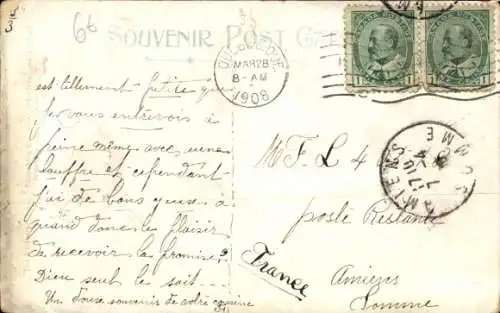 66
SOUVENIR POST CARD
MAR 28
8-AM
1908
CANADA POSTAGE
CANADA POSTAGE
est tellement petite que
je vous entrevois à
peine même avec une
et cependant
j'ai de bons yeux à
quand donc le plaisir
de recevoir la promise?
Dieu seul le sait...
Un doux souvenir de votre cousine
M F. L 4
poste Restante
Amiens
Somme
France
AMIENS
SOMME